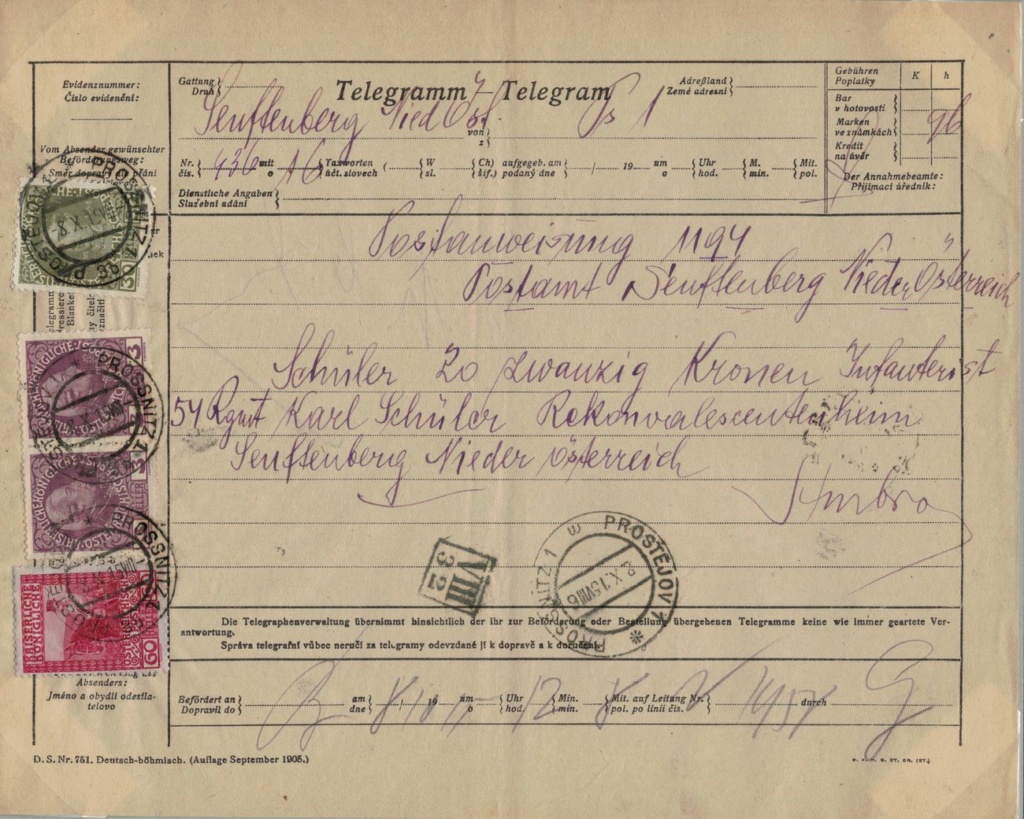 Evidenznummer:
Číslo evidenční:
Vom Absender gewünschter
Beförderungsweg:
Gattung
Druh
Telegramm — Telegram
Adreßland
Země adresní
Senftenberg Nied Öst.
von
z
Ps 1
Nr. 436 mit 16 Taxworten ( W Ch) aufgegeb. am / 19 um Uhr M. Mit.
čís. o účt. slovech sl. šif.) podaný dne o hod. m. pol.
Dienstliche Angaben
Služební udání
Gebühren K h
Poplatky
Bar
v hotovosti
Marken 96
ve známkách
Kredit
na úvěr
Der Annahmebeamte:
Přijímací úředník:
Postanweisung 1194
Postamt Senftenberg Nieder Österreich
Schüler 20 zwanzig Kronen Infanterist
54 Rgmt Karl Schüler Rekonvalescentenheim
Senftenberg Nieder Österreich
PROSSNITZ 1
PROSTĚJOV 1
8.X.15
PROSSNITZ 1
PROSSNITZ 1
KAISERLICHE KÖNIGLICHE
60
VIII
32
PROSTĚJOV 1
PROSSNITZ 1
8.X.15
Die Telegraphenverwaltung übernimmt hinsichtlich der ihr zur Beförderung oder Bestellung übergebenen Telegramme keine wie immer geartete Ver-
antwortung.
Správa telegrafní vůbec neručí za telegramy odevzdané jí k dopravě a k doručení.
Absenders:
Jméno a obydlí odesíla-
telovo
Befördert an am / 19 um Uhr Min. Mit. auf Leitung Nr. durch
Dopravil do dne o hod. min. pol. po linii čís.
D. S. Nr. 751. Deutsch-böhmisch. (Auflage September 1905.)